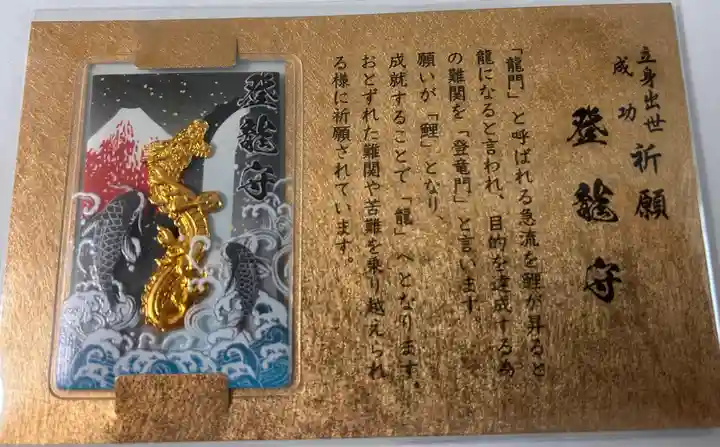 立身出世
成功
祈願
登龍守
「龍門」と呼ばれる急流を鯉が昇ると
龍になると言われ、目的を達成する為
の難関を「登竜門」と言います。
願いが「鯉」となり、
成就することで「龍」へとなります。
おとずれた難関や苦難を乗り越えられ
る様に祈願されています。
登龍守